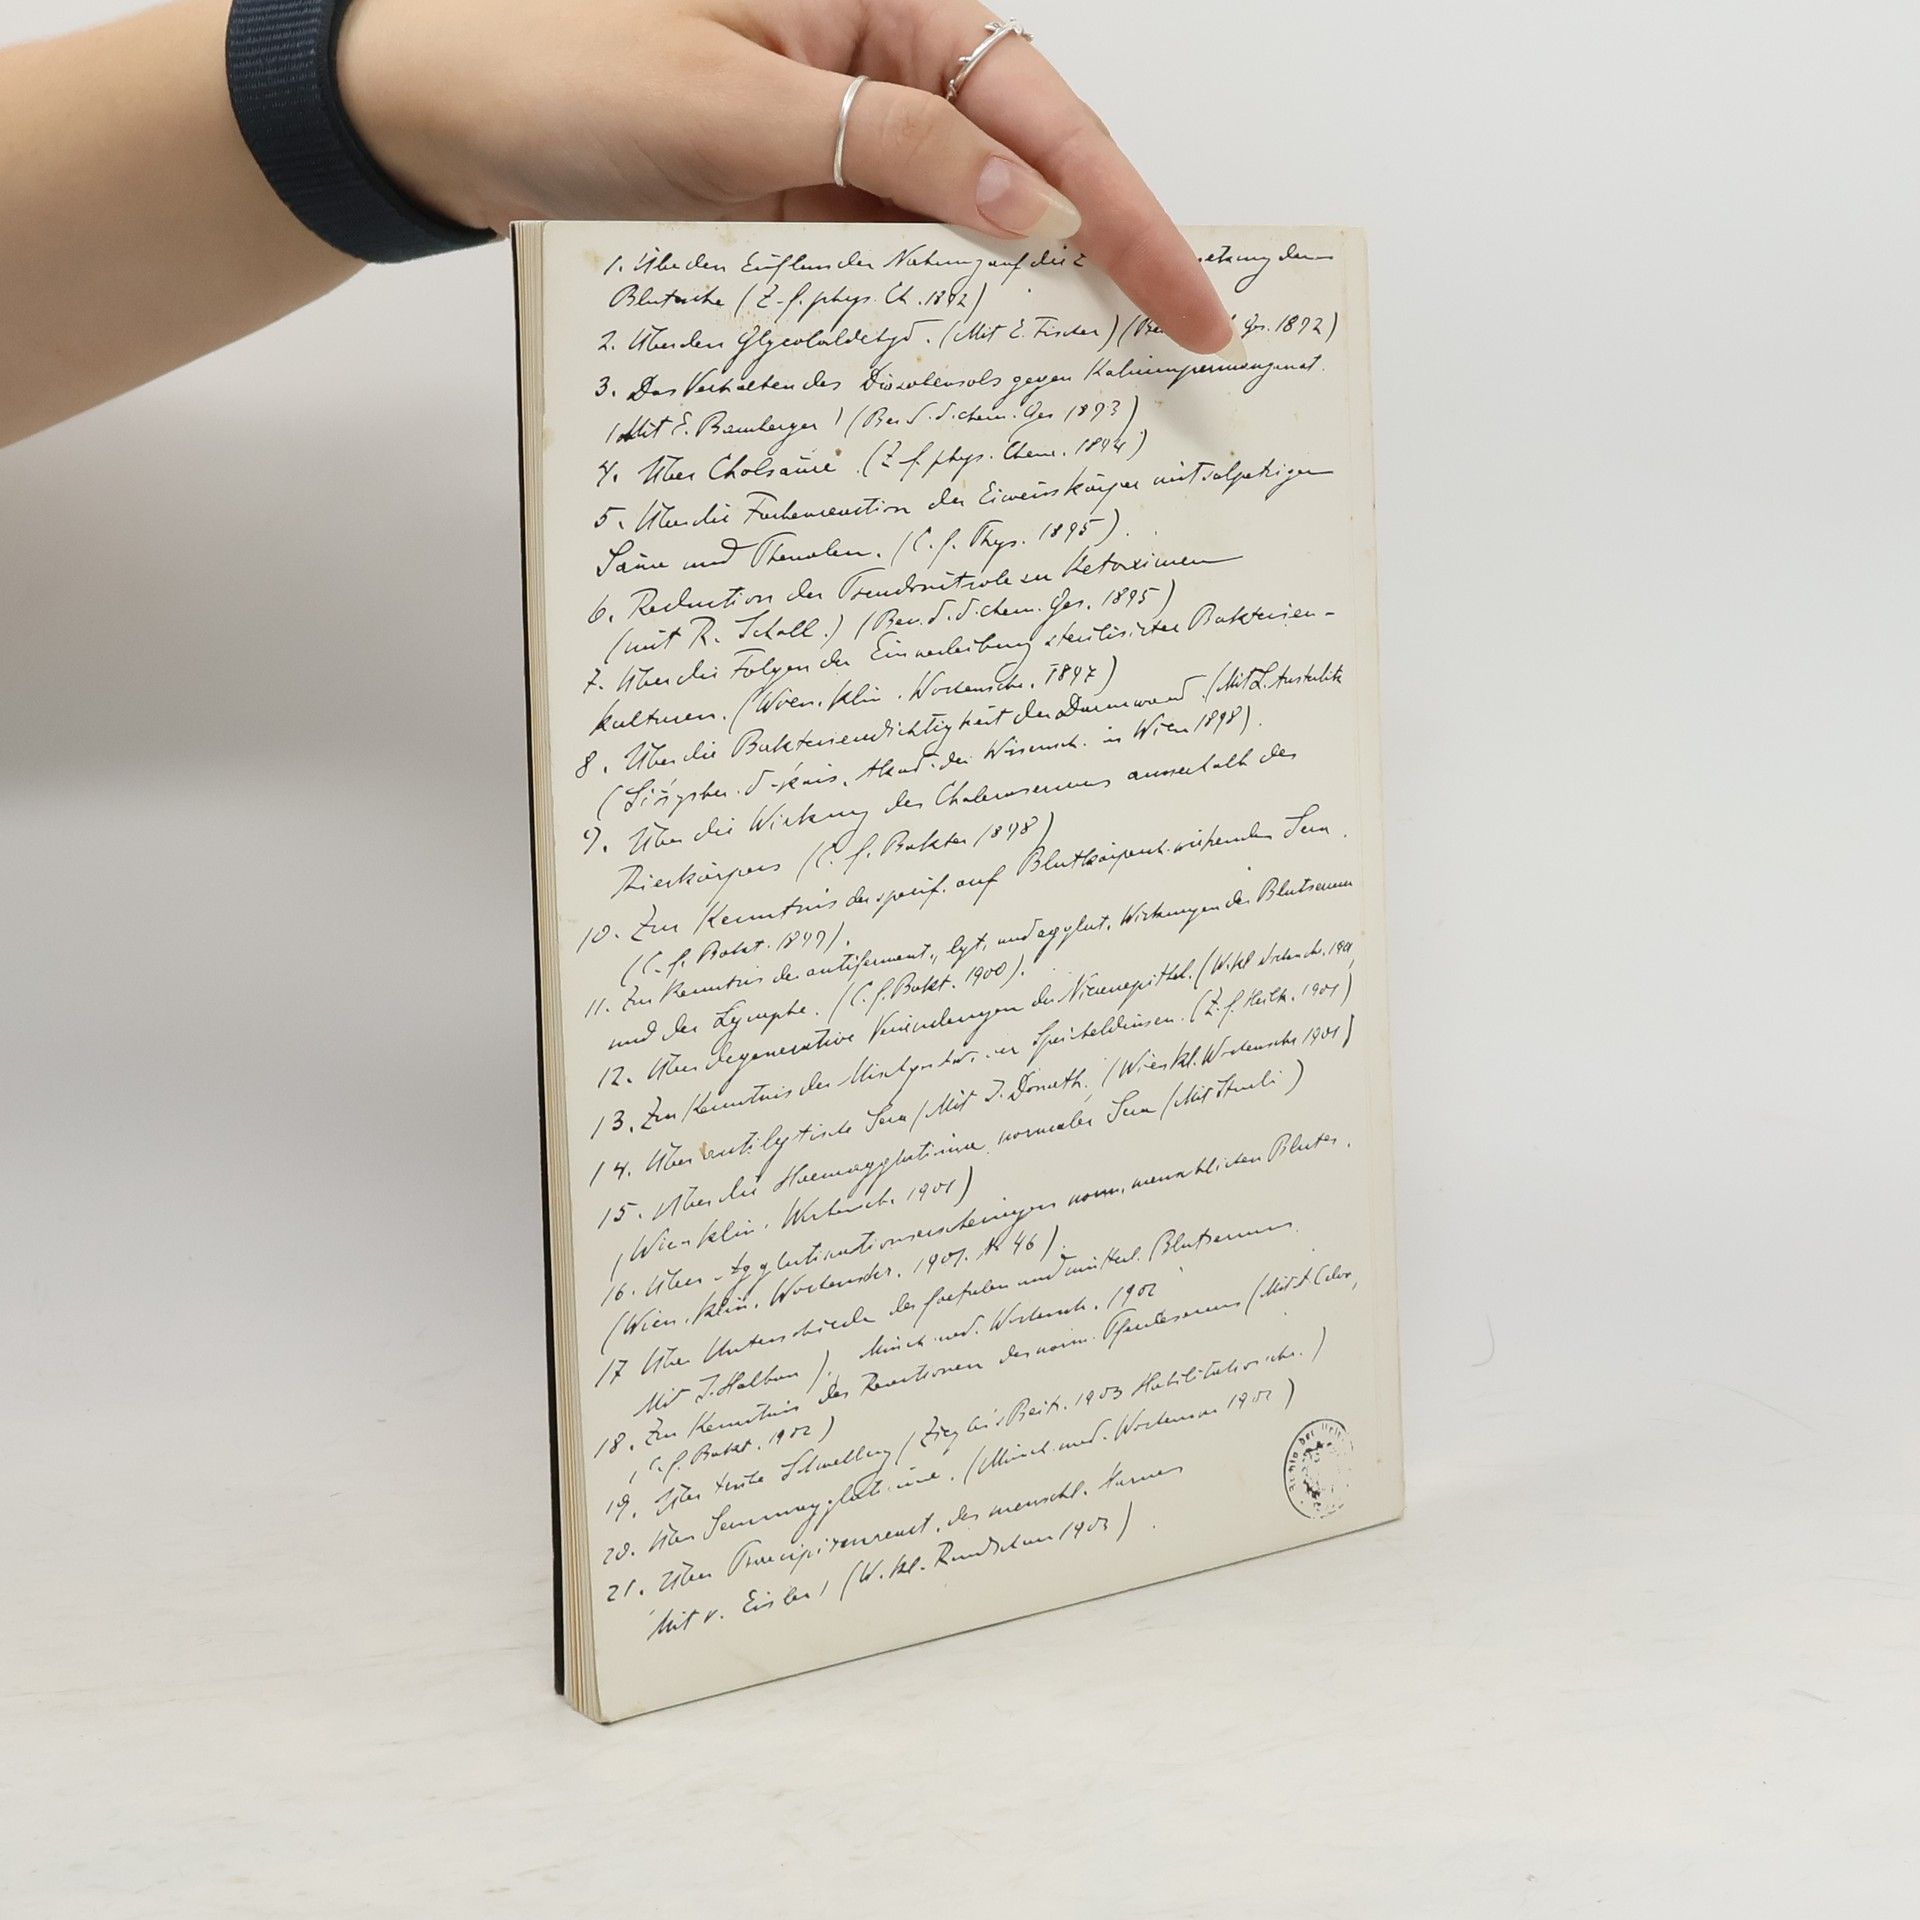 1. Über den Einfluss der Nahrung auf die Z etzung der
Blutasche (Z. f. phys. Ch. 1892)
2. Über den Glycolaldehyd. (Mit E. Fischer) (Ber. Ges. 1892)
3. Das Verhalten des Diazobenzols gegen Kaliumpermanganat.
(Mit E. Bamberger) (Ber. d. d. chem. Ges 1893)
4. Über Cholsäure. (Z. f. phys. Chem. 1894)
5. Über die Farbenreaction der Eiweisskörper mit salpetriger
Säure und Phenolen. (C. f. Phys. 1895).
6. Reduction der Pseudonitrole zu Ketoximen
(mit R. Scholl.) (Ber. d. d. chem. Ges. 1895)
7. Über die Folgen der Einverleibung sterilisirter Bakterien-
kulturen. (Wien. klin. Wochenschr. 1897)
8. Über die Bakteriendichtigkeit der Darmwand. (Mit L. Austerlitz
(Sitzgsber. d. kais. Akad. der Wissensch. in Wien 1898).
9. Über die Wirkung des Choleraserums ausserhalb des
Tierkörpers (C. f. Bakter 1898)
10. Zur Kenntnis der specif. auf Blutkörperch. wirkenden Sera.
(C. f. Bakt. 1899).
11. Zur Kenntnis der antiferment., lyt. und agglut. Wirkungen des Blutserum
und der Lymphe. (C. f. Bakt. 1900).
12. Über degenerative Veränderungen der Nierenepithel. (W. kl Wochenschr. 1901,
13. Zur Kenntnis der Mischgeschw. der Speicheldrüsen. (Z. f. Heilk. 1901)
14. Über antilytische Sera (Mit J. Donath. (Wien kl. Wochenschr 1901)
15. Über die Haemagglutinine normaler Sera (Mit Sturli)
(Wien klin. Wochensch. 1901)
16. Über Agglutinationserscheinungen norm. menschlichen Blutes.
(Wien. klin. Wochenschr. 1901. Nr 46).
17 Über Unterschiede des foetalen und mütterl. Blutserums.
Mit J. Halban). Münch. med. Wochensch. 1902
18. Zur Kenntnis der Reactionen des norm. Pferdeserums (Mit A. Calvo,
(C. f. Bakt. 1902)
19. Über trübe Schwellung (Zieglers Beitr. 1903 Habilitationsschr.)
20. Über Serumagglutinine. (Münch. med. Wochenschr 1902)
21. Über Praecipitinreact. des menschl. Harnes
Mit v. Eisler) (W. kl. Rundschau 1903).